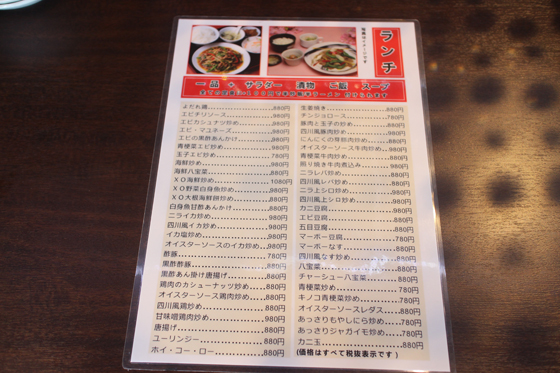 ランチ
一品 + サラダー 漬物 ご飯 スープ
よだれ鶏 880円
エビチリソース 980円
エビカシュナツ炒め 980円
エビ・マユネーズ 980円
エビの黒酢あんかけ 980円
青梗菜エビ炒め 980円
玉子エビ炒め 780円
海鮮炒め 980円
海鮮八宝菜 880円
XO海鮮炒め 1080円
XO野菜白身魚炒め 980円
XO大根海鮮餅炒め 880円
白身魚甘酢あんかけ 880円
ニライカ炒め 980円
四川風イカ炒め 980円
イカ塩炒め 980円
オイスターソースのイカ炒め 980円
酢豚 780円
黒酢酢豚 880円
黒酢あん掛け唐揚げ 880円
鶏肉のカシューナッツ炒め 880円
オイスターソース鶏肉炒め 880円
四川風鶏炒め 880円
甘味噌鶏肉炒め 980円
唐揚げ 880円
ユーリンジー 880円
ホイ・コー・ロー 880円
生姜焼き 880円
チンジョロース 780円
豚肉と玉子の炒め 780円
四川風豚肉炒め 980円
にんにくの芽豚肉炒め 880円
オイスターソース牛肉炒め 980円
青梗菜牛肉炒め 880円
照り焼き牛肉煮込み 980円
ニラレバ炒め 880円
四川風レバ炒め 880円
ニラ上シロ炒め 880円
四川風上シロ炒め 880円
カニ豆腐 880円
エビ豆腐 880円
五目豆腐 880円
マーボー豆腐 780円
マーボーなす 880円
四川風なす炒め 880円
八宝菜 880円
チャーシュー八宝菜 880円
青梗菜炒め 780円
キノコ青梗菜炒め 780円
オイスターソースレダス 880円
あっさりもやしにら炒め 780円
あっさりジャガイモ炒め 780円
カニ玉 880円
(価格はすべて税抜表示です)